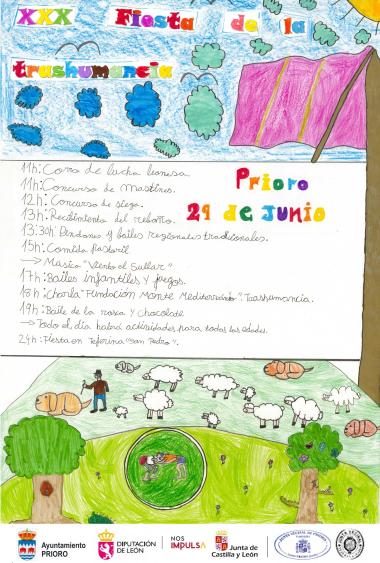 XXX Fiesta de la
trashumancia
Prioro
29 de Junio
11h: Corro de lucha leonesa
11h: Concurso de mastines.
12h: Concurso de siega.
13h: Recibimiento del rebaño.
13:30h Pendones y bailes regionales tradicionales.
15h: Comida Pastoril
→ Música "Viento el Sullar"
17h: Bailes infantiles y juegos.
18h: Charla "Fundación Monte Mediterráneo". Trashumancia.
19h: Baile de la rosca y Chocolate
→ Todo el día habrá actividades para todas las edades.
24h: Fiesta en Teferina "San Pedro".
Ayuntamiento
PRIORO
DIPUTACIÓN
DE LEÓN
NOS
IMPULSA
Junta de
Castilla y León